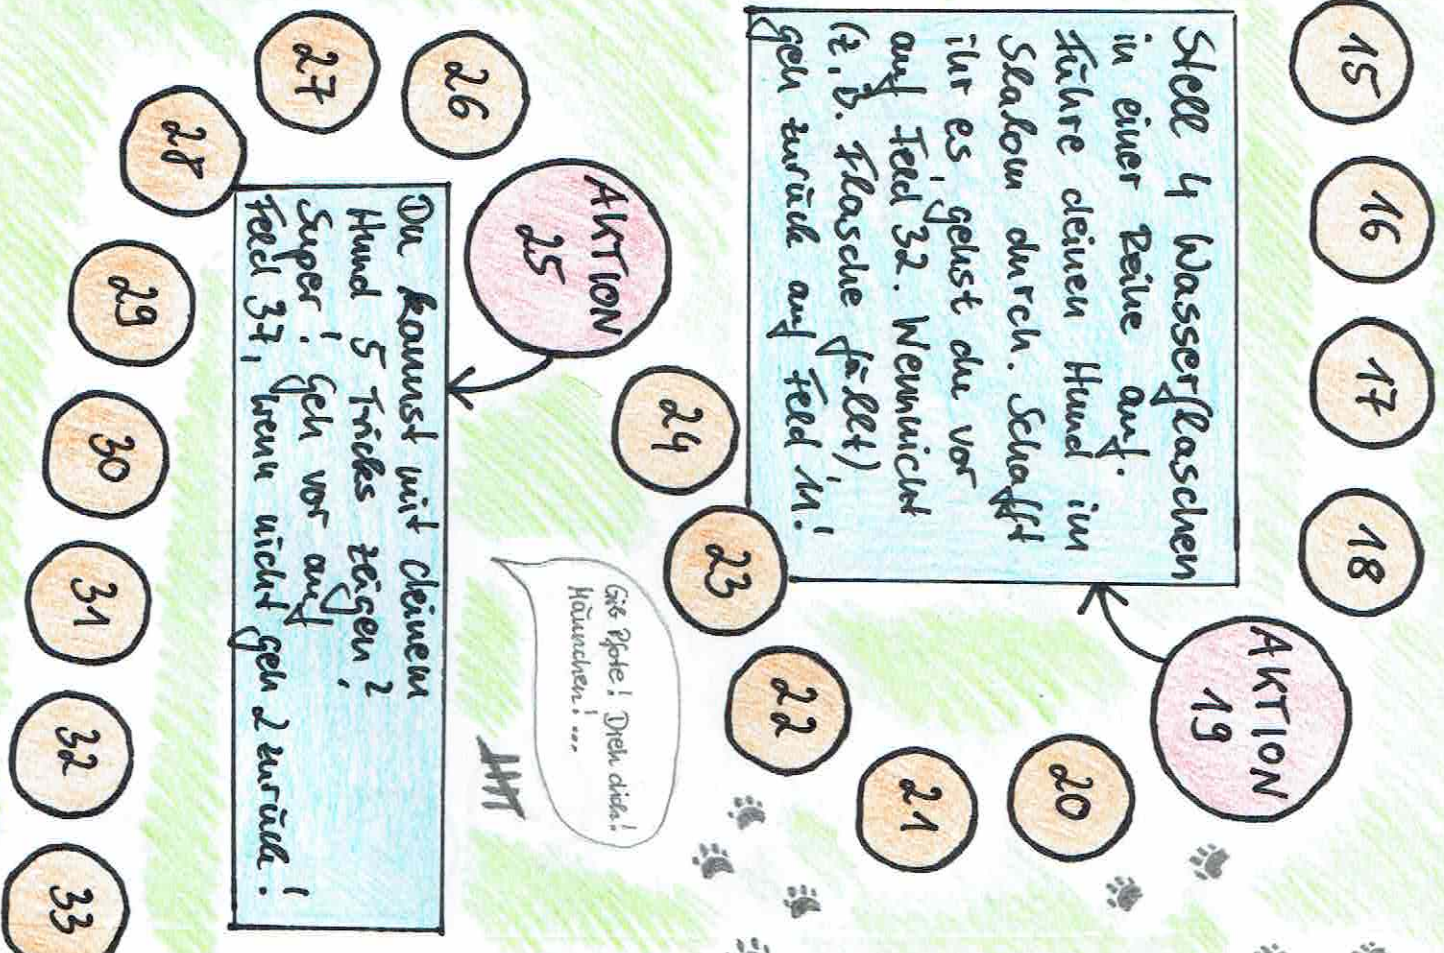 15
16
17
18
AKTION
19
Stell 4 Wasserflaschen
in einer Reihe auf.
Führe deinen Hund im
Slalom durch. Schafft
ihr es, gehst du vor
auf Feld 32. Wenn nicht
(z.B. Flasche fällt)
geh zurück auf Feld 11!
20
21
22
23
24
AKTION
25
Gib Pfote! Dreh dich!
Männchen!...
Du kannst mit deinem
Hund 5 Tricks zeigen?
Super! Geh vor auf
Feld 37, wenn nicht geh 2 zurück!
26
27
28
29
30
31
32
33